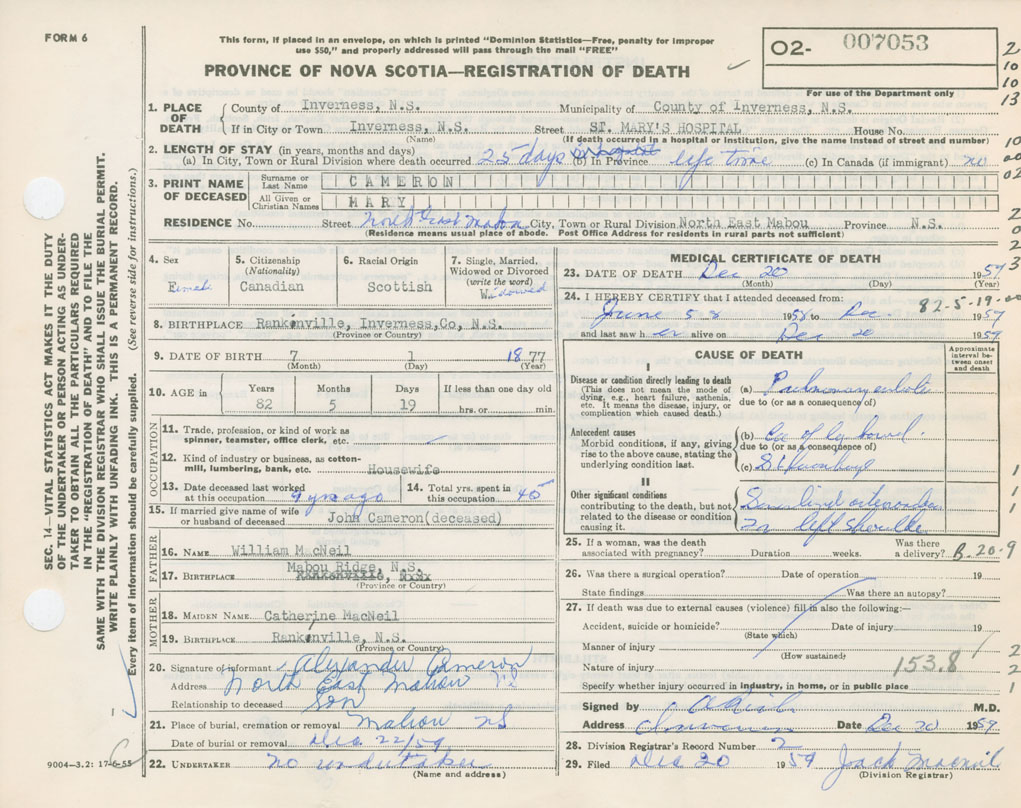 FORM 6
This form, if placed in an envelope, on which is printed "Dominion Statistics—Free, penalty for improper
use $50," and properly addressed will pass through the mail "FREE"
PROVINCE OF NOVA SCOTIA—REGISTRATION OF DEATH
O2- 007053
For use of the Department only
SEC. 14— VITAL STATISTICS ACT MAKES IT THE DUTY
OF THE UNDERTAKER OR PERSON ACTING AS UNDER-
TAKER TO OBTAIN ALL THE PARTICULARS REQUIRED
IN THE "REGISTRATION OF DEATH" AND TO FILE THE
SAME WITH THE DIVISION REGISTRAR WHO SHALL ISSUE THE BURIAL PERMIT.
WRITE PLAINLY WITH UNFADING INK. THIS IS A PERMANENT RECORD.
Every item of information should be carefully supplied. (See reverse side for instructions.)
1. PLACE OF DEATH
County of Inverness, N.S. Municipality of County of Inverness, N.S.
If in City or Town Inverness, N.S. Street ST. MARY'S HOSPITAL House No.
(Name) (If death occurred in a hospital or institution, give the name instead of street and number)
2. LENGTH OF STAY (in years, months and days)
(a) In City, Town or Rural Division where death occurred 25 days (b) in Province life time (c) In Canada (if immigrant) no
3. PRINT NAME OF DECEASED
Surname or Last Name CAMERON
All Given or Christian Names MARY
RESIDENCE No. Street North East Mabou City, Town or Rural Division North East Mabou Province N.S.
(Residence means usual place of abode. Post Office Address for residents in rural parts not sufficient)
4. Sex Female
5. Citizenship (Nationality) Canadian
6. Racial Origin Scottish
7. Single, Married, Widowed or Divorced (write the word) Widowed
8. BIRTHPLACE Rankinville, Inverness,Co, N.S.
(Province or Country)
9. DATE OF BIRTH 7 1 1877
(Month) (Day) (Year)
10. AGE in Years Months Days If less than one day old
82 5 19 hrs. or min.
OCCUPATION
11. Trade, profession, or kind of work as
spinner, teamster, office clerk, etc.
12. Kind of industry or business, as cotton-
mill, lumbering, bank, etc. Housewife
13. Date deceased last worked
at this occupation 9 yrs ago
14. Total yrs. spent in
this occupation 45
15. If married give name of wife
or husband of deceased John Cameron(deceased)
FATHER
16. NAME William MacNeil
17. BIRTHPLACE Mabou Ridge, N.S.
(Province or Country)
MOTHER
18. MAIDEN NAME Catherine MacNeil
19. BIRTHPLACE Rankinville, N.S.
(Province or Country)
20. Signature of informant Alexander Cameron
Address North East Mabou NS
Relationship to deceased Son
21. Place of burial, cremation or removal Mabou NS
Date of burial or removal Dec 22/59
22. UNDERTAKER no undertaker
(Name and address)
9004—3.2: 17-6-55
MEDICAL CERTIFICATE OF DEATH
23. DATE OF DEATH Dec 20 1959
(Month) (Day) (Year)
82-5-19
24. I HEREBY CERTIFY that I attended deceased from:
June 58 1958 to Dec. 1959
and last saw her alive on Dec 20 1959
CAUSE OF DEATH
Approximate interval between onset and death
I
Disease or condition directly leading to death
(This does not mean the mode of
dying, e.g., heart failure, asthenia,
etc. It means the disease, injury, or
complication which caused death.)
(a) Pulmonary
due to (or as a consequence of)
Antecedent causes
Morbid conditions, if any, giving
rise to the above cause, stating the
underlying condition last.
(b) Ca of lg bowel.
due to (or as a consequence of)
(c)
II
Other significant conditions
contributing to the death, but not
related to the disease or condition
causing it.
left shoulder
25. If a woman, was the death
associated with pregnancy? Duration weeks. Was there a delivery? B.20-9
26. Was there a surgical operation? Date of operation 19
State findings Was there an autopsy?
27. If death was due to external causes (violence) fill in also the following:—
Accident, suicide or homicide? Date of injury 19
(State which)
Manner of injury
(How sustained)
Nature of injury 153.8
Specify whether injury occurred in industry, in home, or in public place
Signed by M.D.
Address Inverness Date Dec 20 1959
28. Division Registrar's Record Number 2
29. Filed Dec 20 1959 Jack Macneil
(Division Registrar)